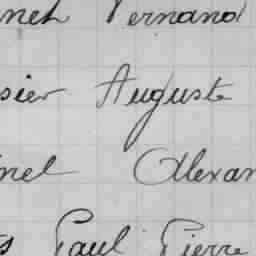 net Fernand
sier Auguste
nel Alexan
s Paul Pierre